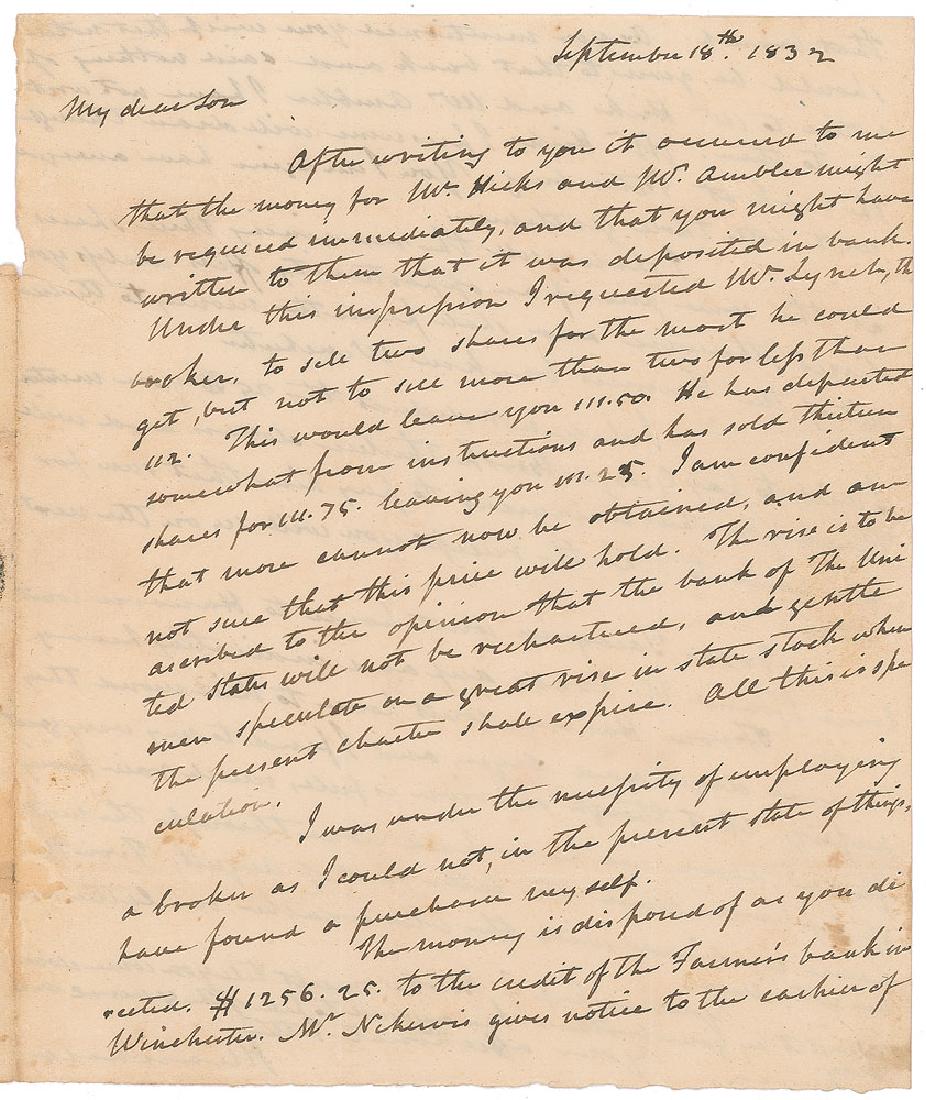 September 18th. 1832
My dear Son
After writing to you it occured to me
that the money for Mr. Hicks and Mr. Ambler might
be required immediately, and that you might have
written to them that it was deposited in bank.
Under this impression I requested Mr. Lynch, th
broker, to sell two shares for the most he could
get, but not to sell more than two for less than
112. This would leave you 111.50. He has departed
somewhat from instructions and has sold thirteen
shares for 111.75. leaving you 111.25. I am confident
that more cannot now be obtained, and am
not sure that this price will hold. The rise is to be
ascribed to the opinion that the bank of The Uni
ted States will not be rechartered, and gentle
men speculate on a great rise in state stock when
the present charter shall expire. All this is spe
culation.
I was under the necessity of employing
a broker as I could not, in the present state of things,
have found a purchaser myself.
The money is disposed of as you di
rected. $1256.25. to the credit of the Farmer's bank in
Winchester. Mr. Nekervis gives notice to the cashier of